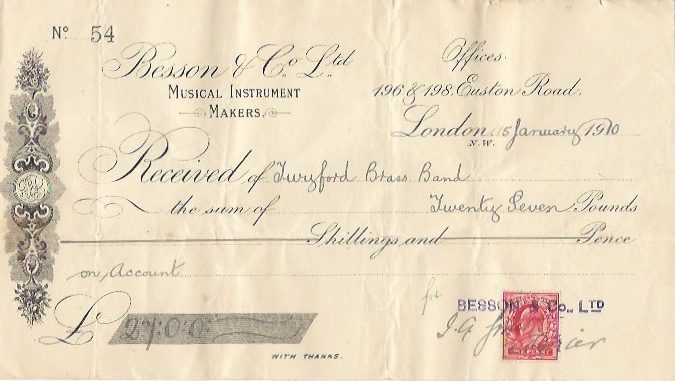 Nº 54
Besson & Co. Ltd
Offices.
MUSICAL INSTRUMENT
MAKERS.
196 & 198, Euston Road.
London, 15 January 1910
N.W.
Received of Twyford Brass Band
the sum of Twenty Seven Pounds
Shillings and Pence
on Account
for BESSON & Co., LTD
£ 27:0:0:
J. A.
ONE PENNY
WITH THANKS.